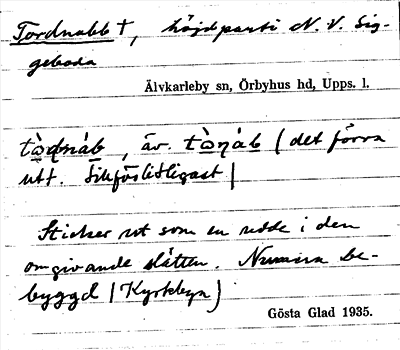 Tordnabb †, höjdparti N. V. Sig-
geboda
Älvkarleby sn, Örbyhus hd, Upps. l.
tòḍnáb, äv. tòṇáb (det förra
utt. tillförlitligast)
Sticker ut som en udde i den
omgivande slätten. Numera be-
byggd (Kyrkbyn)
Gösta Glad 1935.